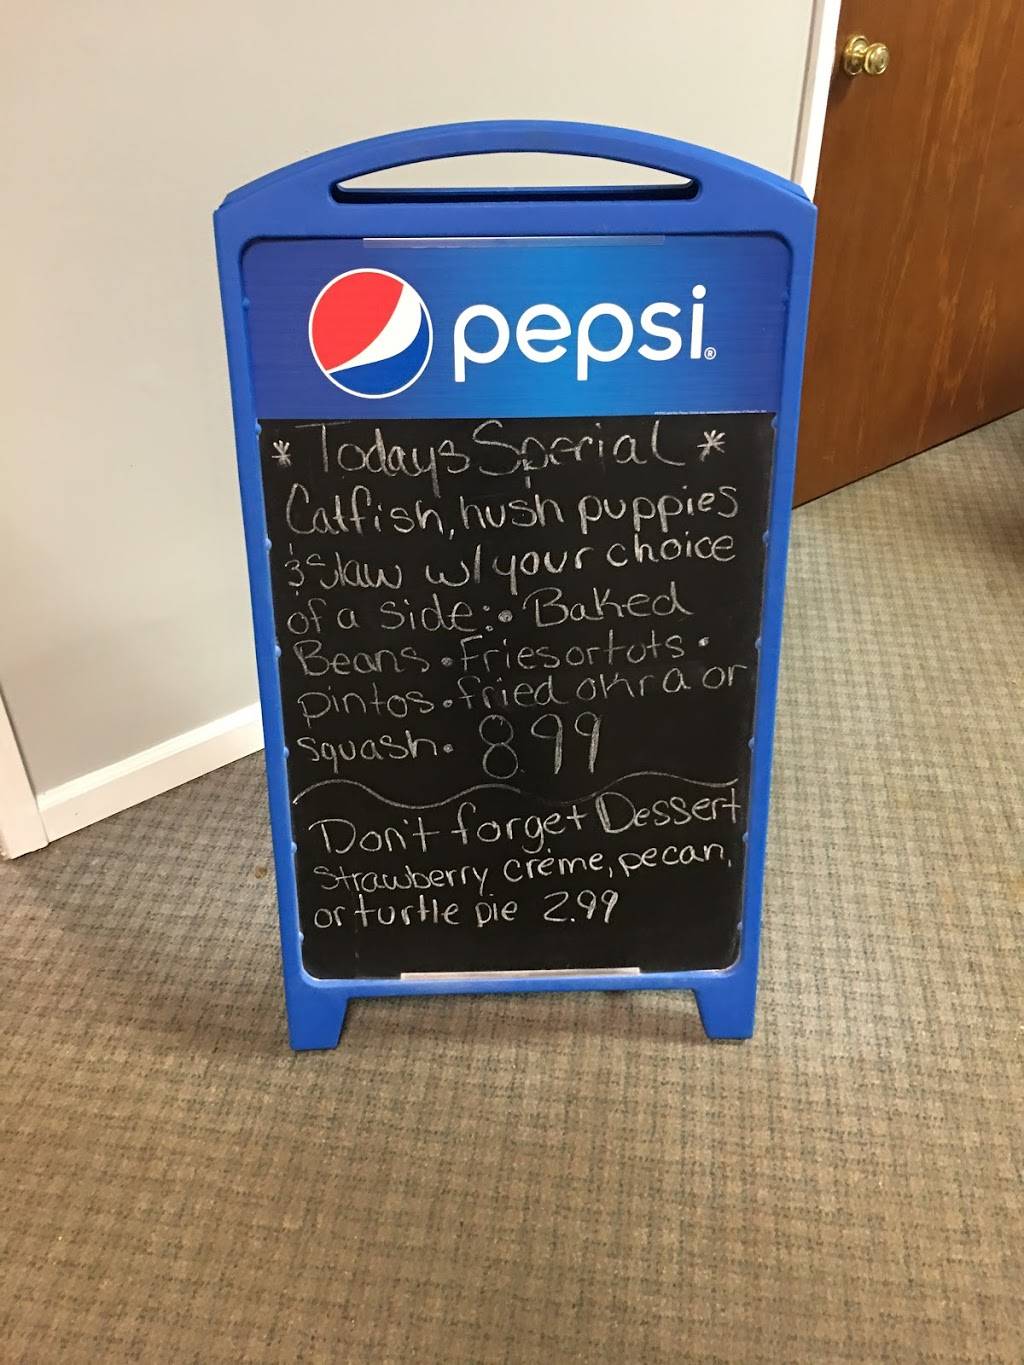 pepsi®
* Todays Special *
Catfish, hush puppies
& slaw w/ your choice
of a side: • Baked
Beans • Fries or tots •
pintos • fried okra or
squash • 8.99
Don't forget Dessert
strawberry créme, pecan,
or turtle pie 2.99